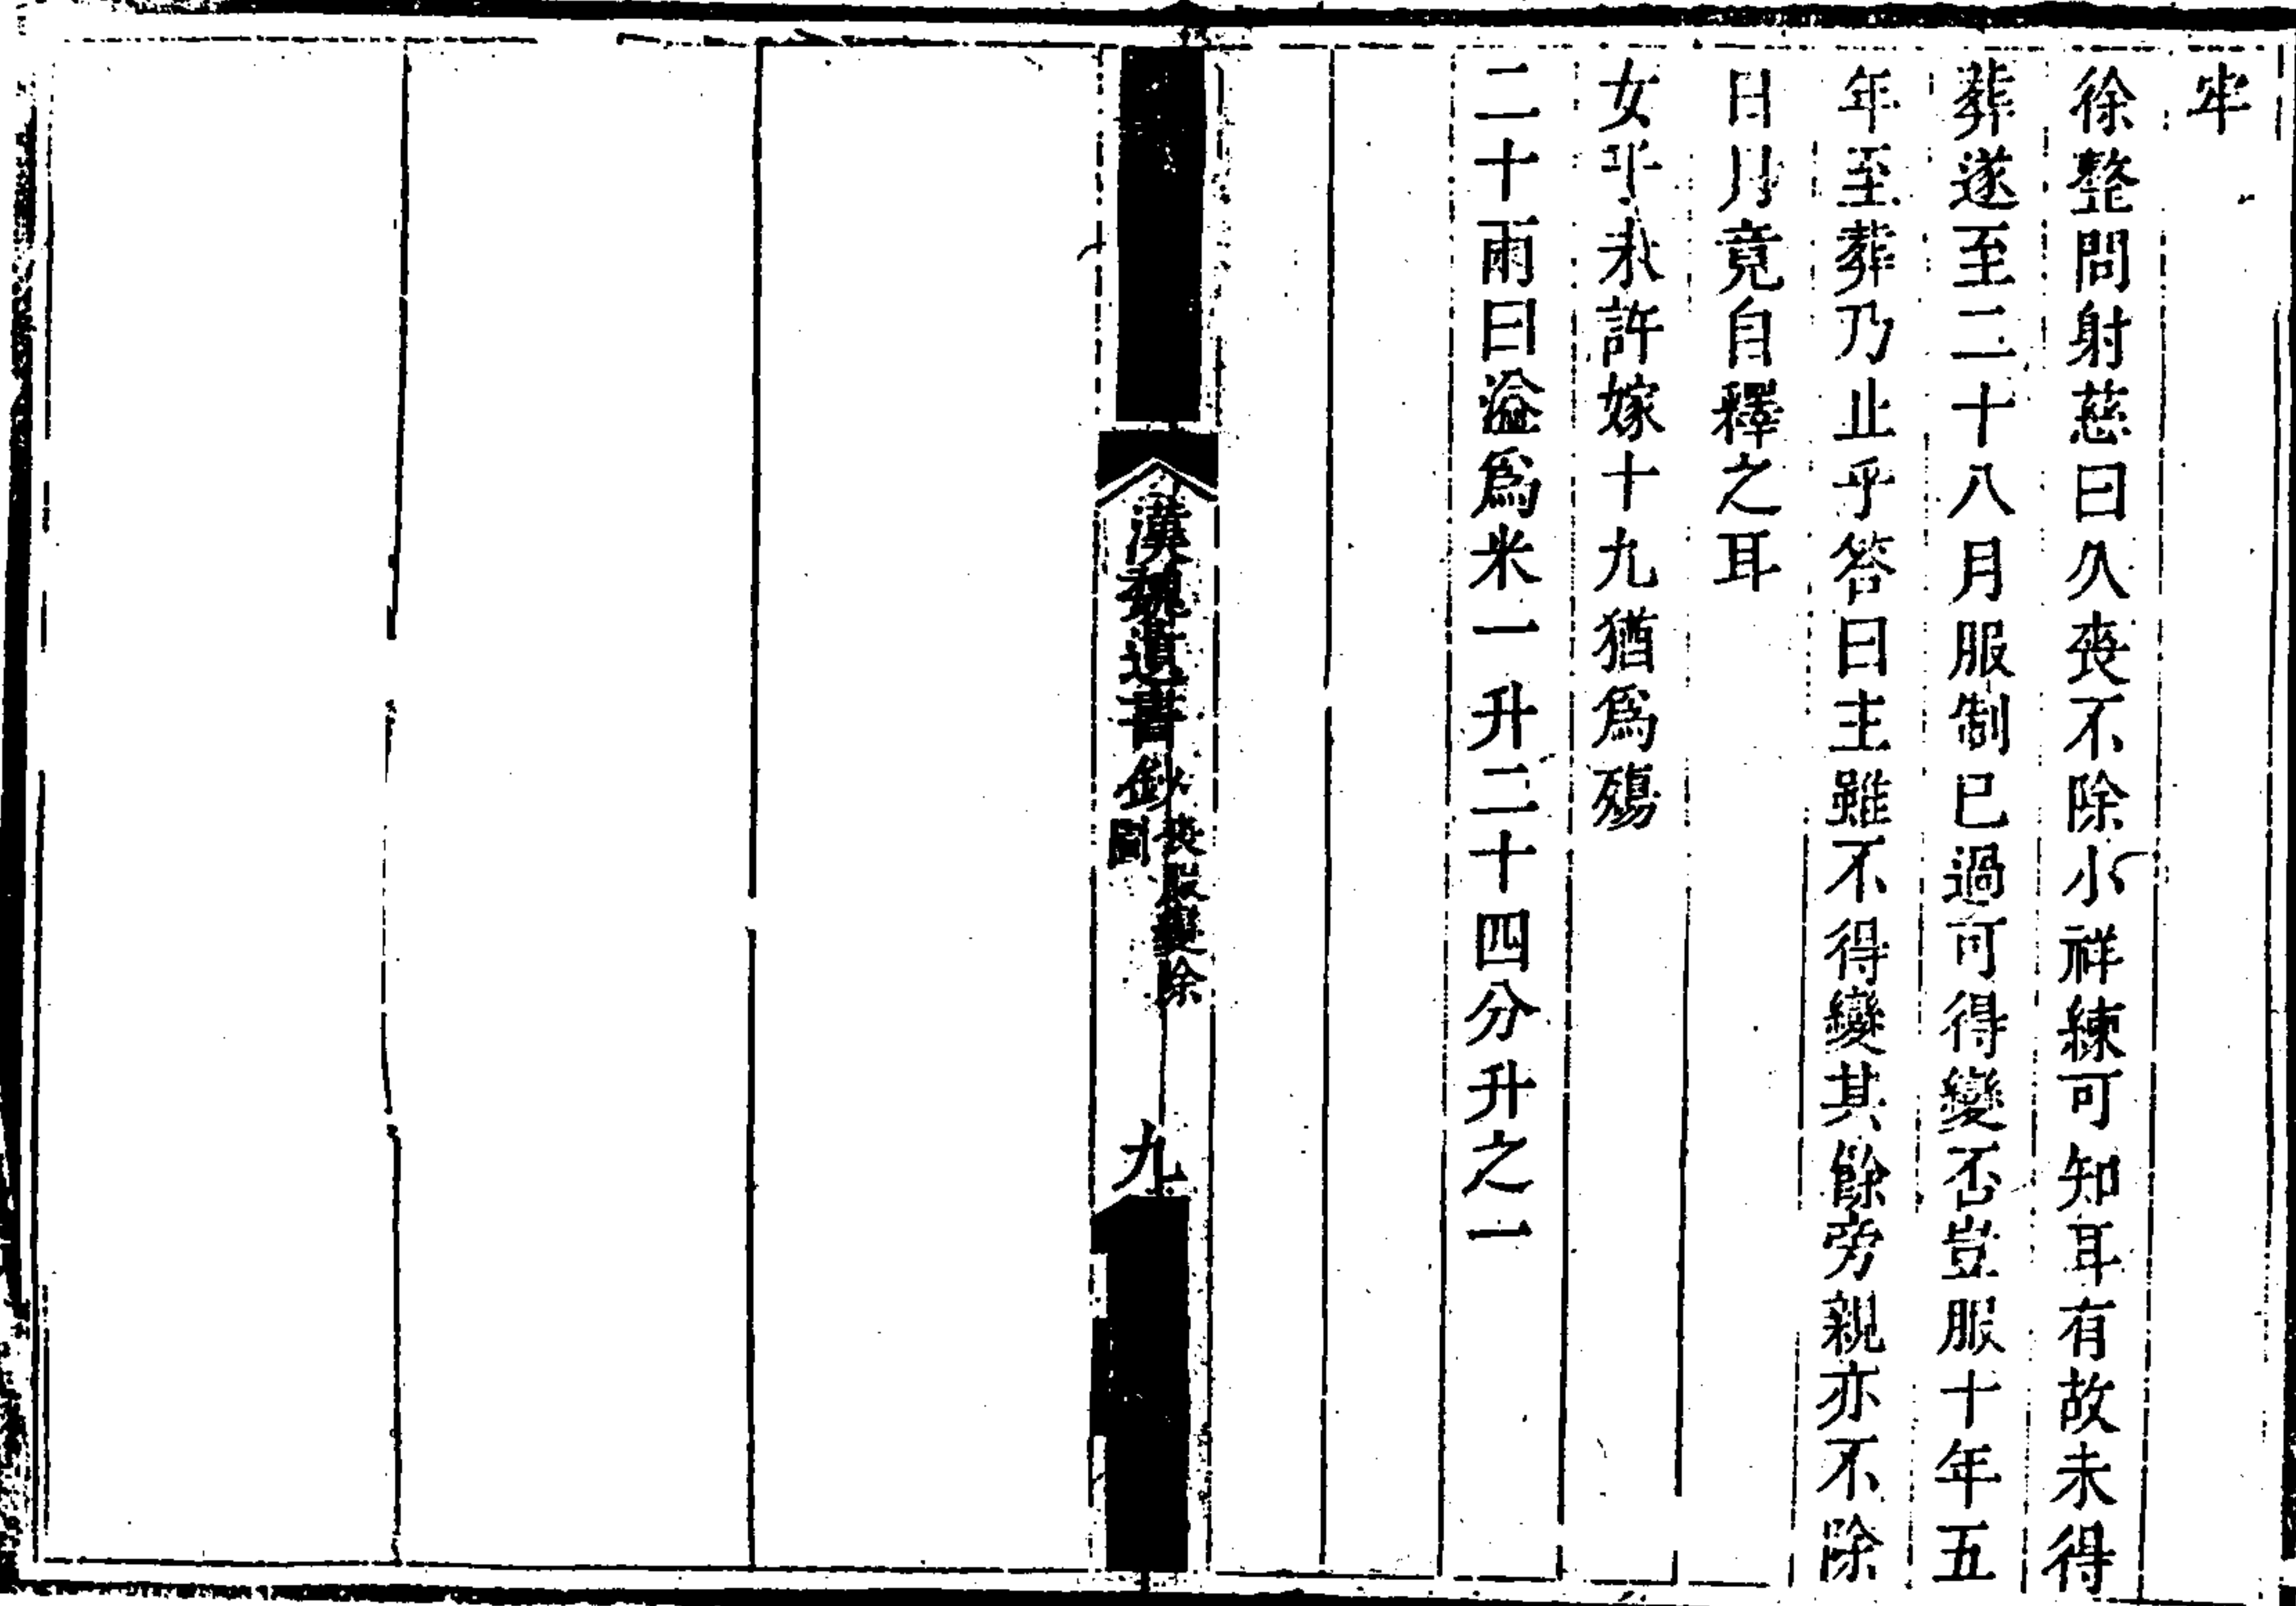 牢
徐整問射慈曰久喪不除小祥練可知耳有故未得
葬遂至二十八月服制已過可得變否豈服十年五
年至葬乃止乎答曰主雖不得變其餘旁親亦不除
日月竟自釋之耳
女子未許嫁十九猶爲殤
二十兩曰溢爲米一升二十四分升之一
漢魏遺書鈔
喪服變除
圖
九